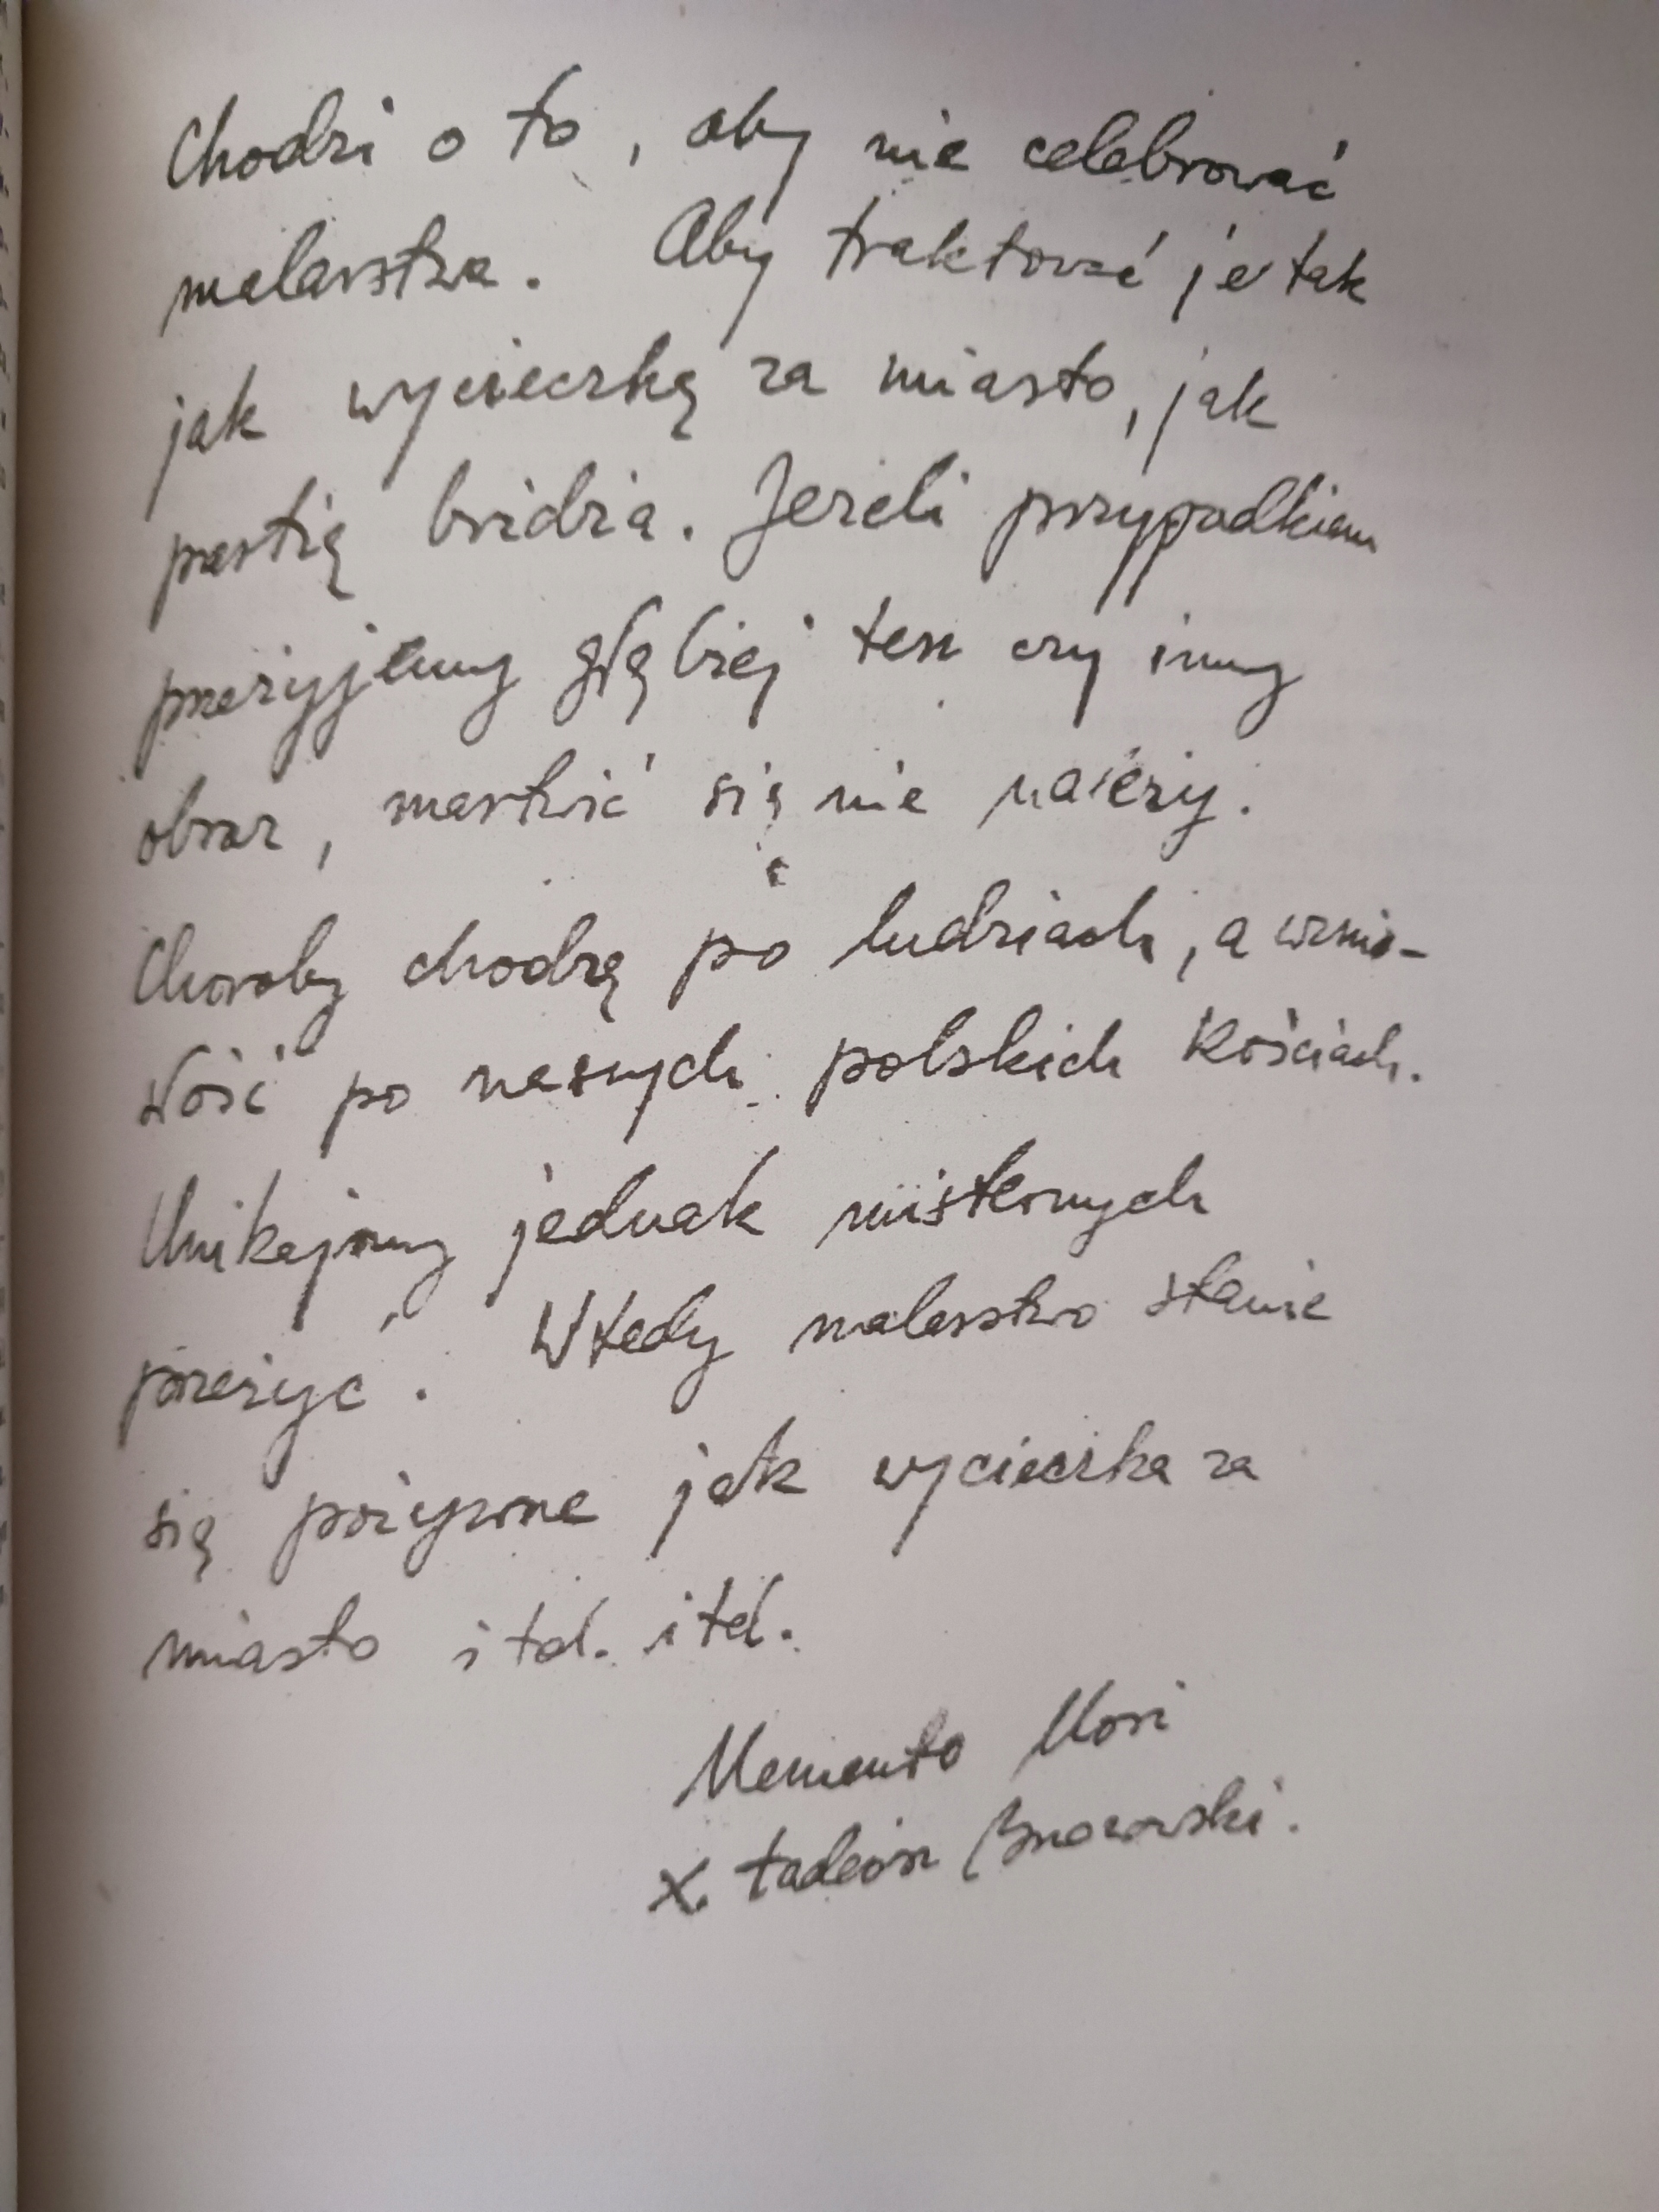 Chodzi o to, aby nie celebrować
malarstwa. Aby traktować je tak
jak wycieczkę za miasto, jak
partię bridża. Jeżeli przypadkiem
przeżyjemy głębiej ten czy inny
obraz, martwić się nie należy.
Choroby chodzą po ludziach, a wznio-
słość po naszych polskich kościach.
Unikajmy jednak misternych
przeżyć. Wtedy malarstwo stanie
się pożywne jak wycieczka za
miasto itd. itd.
Memento Mori
X. Tadeusz Brzozowski.